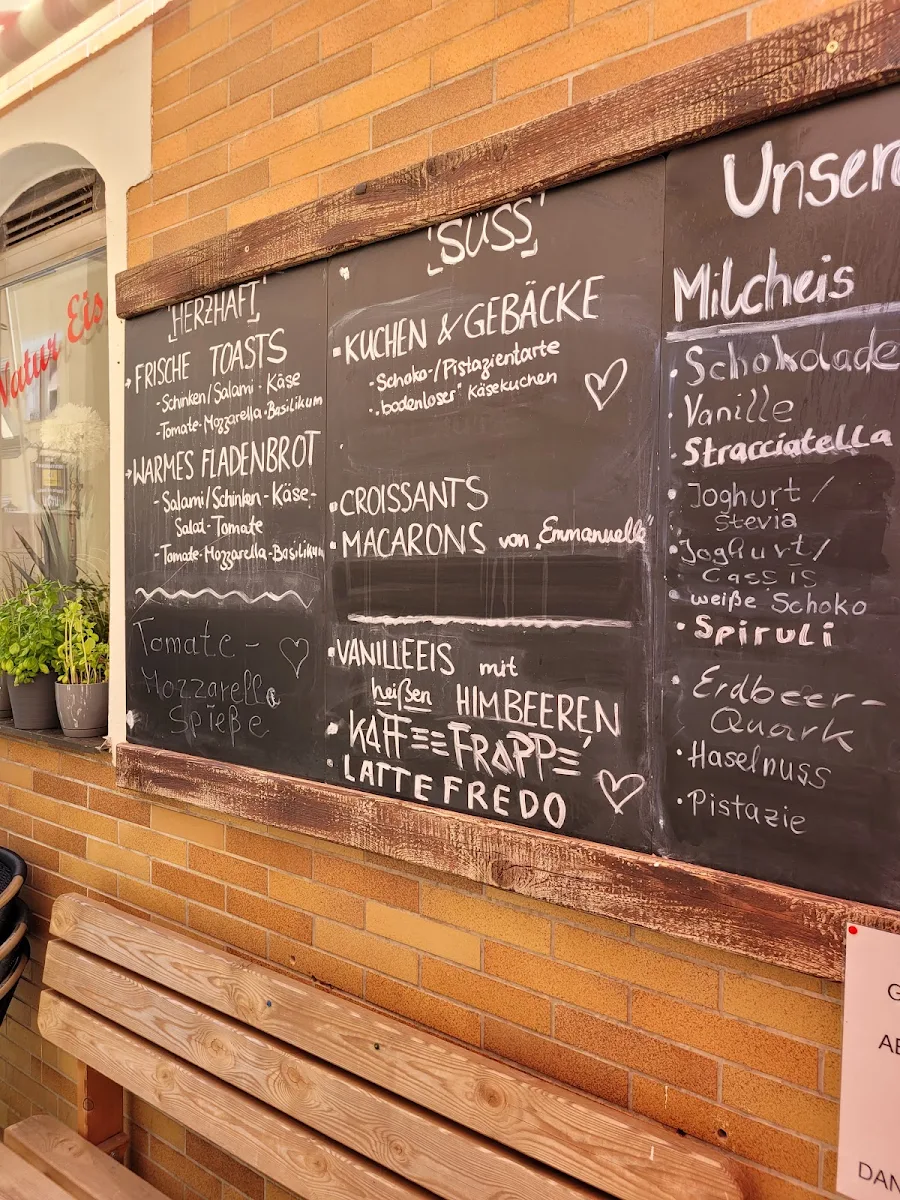 Natur Eis
HERZHAFT
FRISCHE TOASTS
- Schinken/Salami · Käse
- Tomate · Mozzarella · Basilikum
WARMES FLADENBROT
- Salami/Schinken - Käse -
Salat - Tomate
- Tomate · Mozzarella - Basilikum
Tomate -
Mozzarella
Spieße
SÜSS
KUCHEN & GEBÄCKE
- Schoko-/Pistazientarte
- „bodenloser" Käsekuchen
CROISSANTS
MACARONS von „Emmanuelle"
VANILLEEIS mit
heißen HIMBEEREN
KAFFEE FRAPPÉ
LATTE FREDO
Unsere
Milcheis
· Schokolade
· Vanille
· Stracciatella
· Joghurt /
Stevia
· Joghurt /
Cassis
· weiße Schoko
· Spiruli
· Erdbeer -
Quark
· Haselnuss
· Pistazie
G
AB
DAN